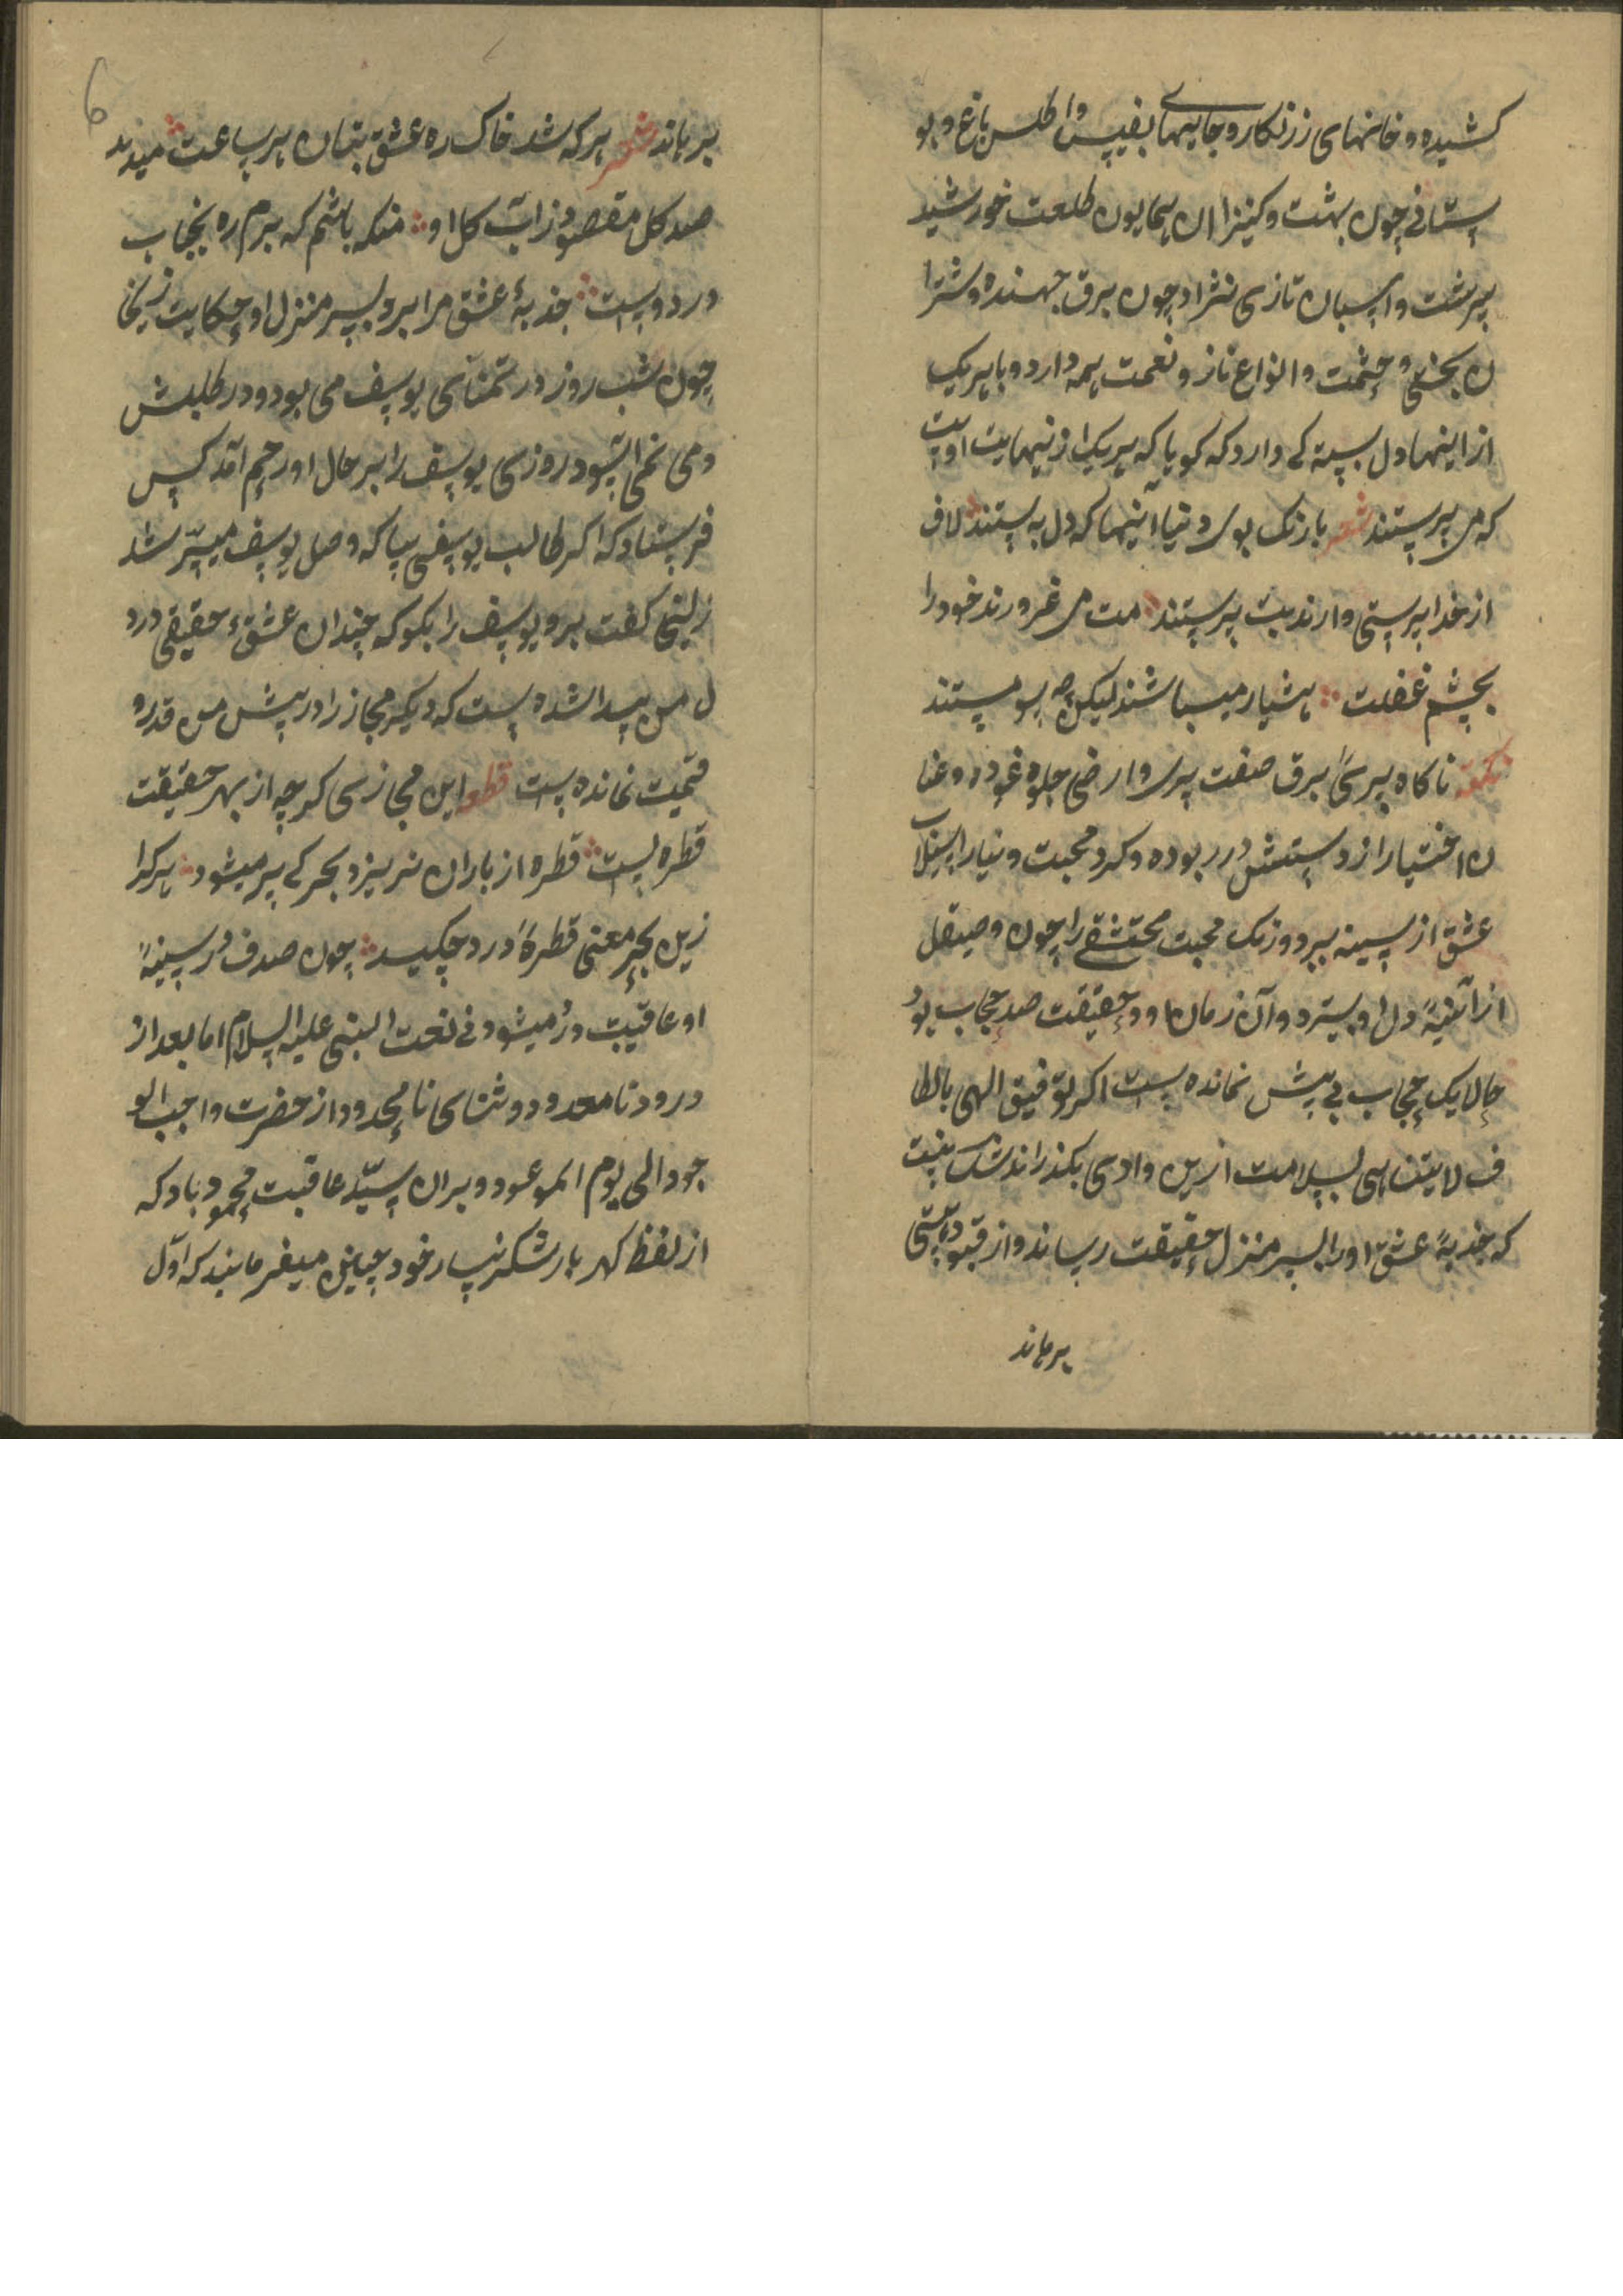 کشیده و خانهای زرنکار و جامهای نفیس و اطلس باغ و بو
ستانی چون بهشت و کنیزان همایون طلعت خورشید
پرشت و اسبان تازی نژاد چون برق جهنده و شترا
ن بختی و حشمت و انواع ناز و نعمت همه دارد و با هریک
از اینها دل بستکی دارد که کویا که هریک ازینهابت اویست
که می پرستند شعر بارنک بوی دنیا اینها که دل به بستند لاف
از خدا پرستی دارند بت پرستند مست می غرورند خود را
بچشم غفلت هشیار میباشند لیکن چه سو مستند
نکته ناکاه پری برق صفت پری وارضی جلوه نمود و عنا
ن اختیار از دستش در ربوده و کرد محبت دنیا را بسیلاب
عشق از سینه ببرد و زنک محبت را چون صیقل
از آئینهٔ دل او بسترد و آن زمان او و حقیقت صد حجاب بود
حالا یک حجاب بی پیش نمانده است اکر توفیق الهی بالطا
ف لایتناهی بسلامت ازین وادی بکذراند شک نیست
که جذبهٔ عشق اورا بسر منزل حقیقت رساند و از قیود هستی
برهاند
6
برهاند شعر هرکه شد خاک ره عشق بتان هر ساعت میدمد
صد کل مقصود ز آب کل او منکه باشم که برم ره بجناب
در دوست جذبهٔ عشق مرا برد بسر منزل او حکایت زلیخا
چون شب روز در تمنآی یوسف می بود و در طلبش
می روزی یوسف را بر حال او رحم آمد کس
فرستاد که اکر طالب یوسفی بیا که وصل یوسف میسّر شد
زلیخا کفت برو یوسف را بکو که چندان عشق حقیقی در د
ل من پیدا شده است که دیکر مجاز را در پیش من قدر و
قیمت نمانده است قطعه این مجازی کرچه از بهر حقیقت
قطره یست قطره از باران نریزد بحر کی پر میشود هرکرا
زین بحر معنی قطرهٔ درد چکید چون صدف در سینهٔ
او عاقبت در میشود فی نعت النبی علیه السلام اما بعد از
درود نامعدود و ثنای نامحدود از حضرت واجب الو
جود الی یوم الموعود و بران سیّد عاقبت محمود باد که
از لفظ کهر بار شکر نثار خود چنین میفرمایند که اوّل